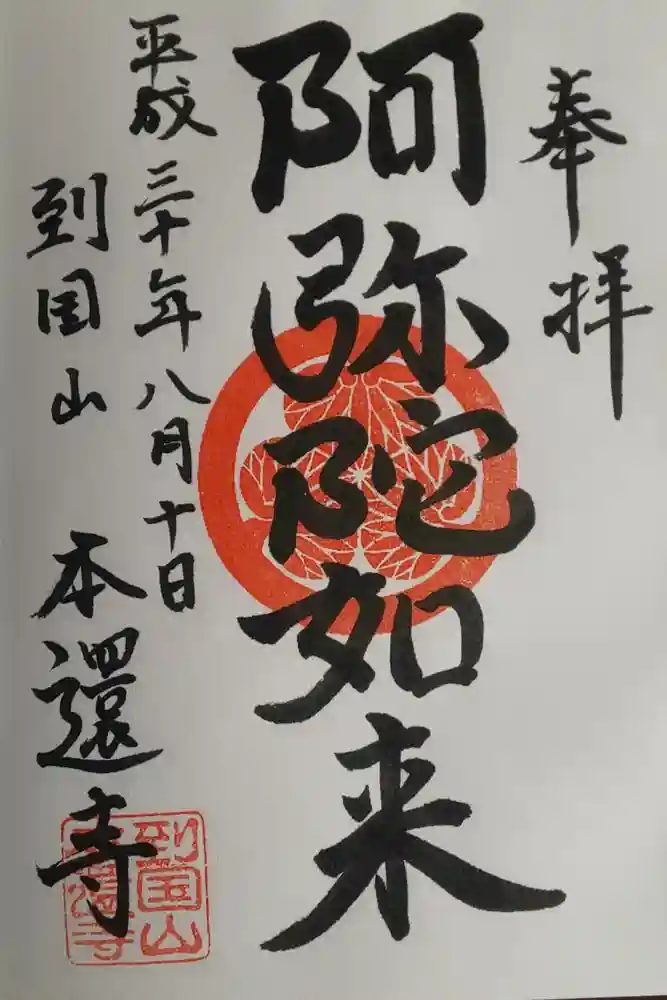 奉拝
阿弥陀如来
平成三十年八月十日
到国山 本還寺
到国山
本還寺